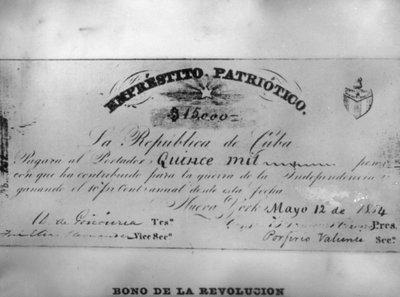 EMPRÉSTITO PATRIÓTICO.
$15000=
La Republica de Cuba
Pagará al Portador Quince mil pesos
con que ha contribuido para la guerra de la Independencia
ganando el 10 p% Cent. annual desde esta fecha
Nueva York Mayo 12 de 1854
D. de Goicuria Tes.º Pres.
Vice Sec.º Porfirio Valiente Sec.º
BONO DE LA REVOLUCION